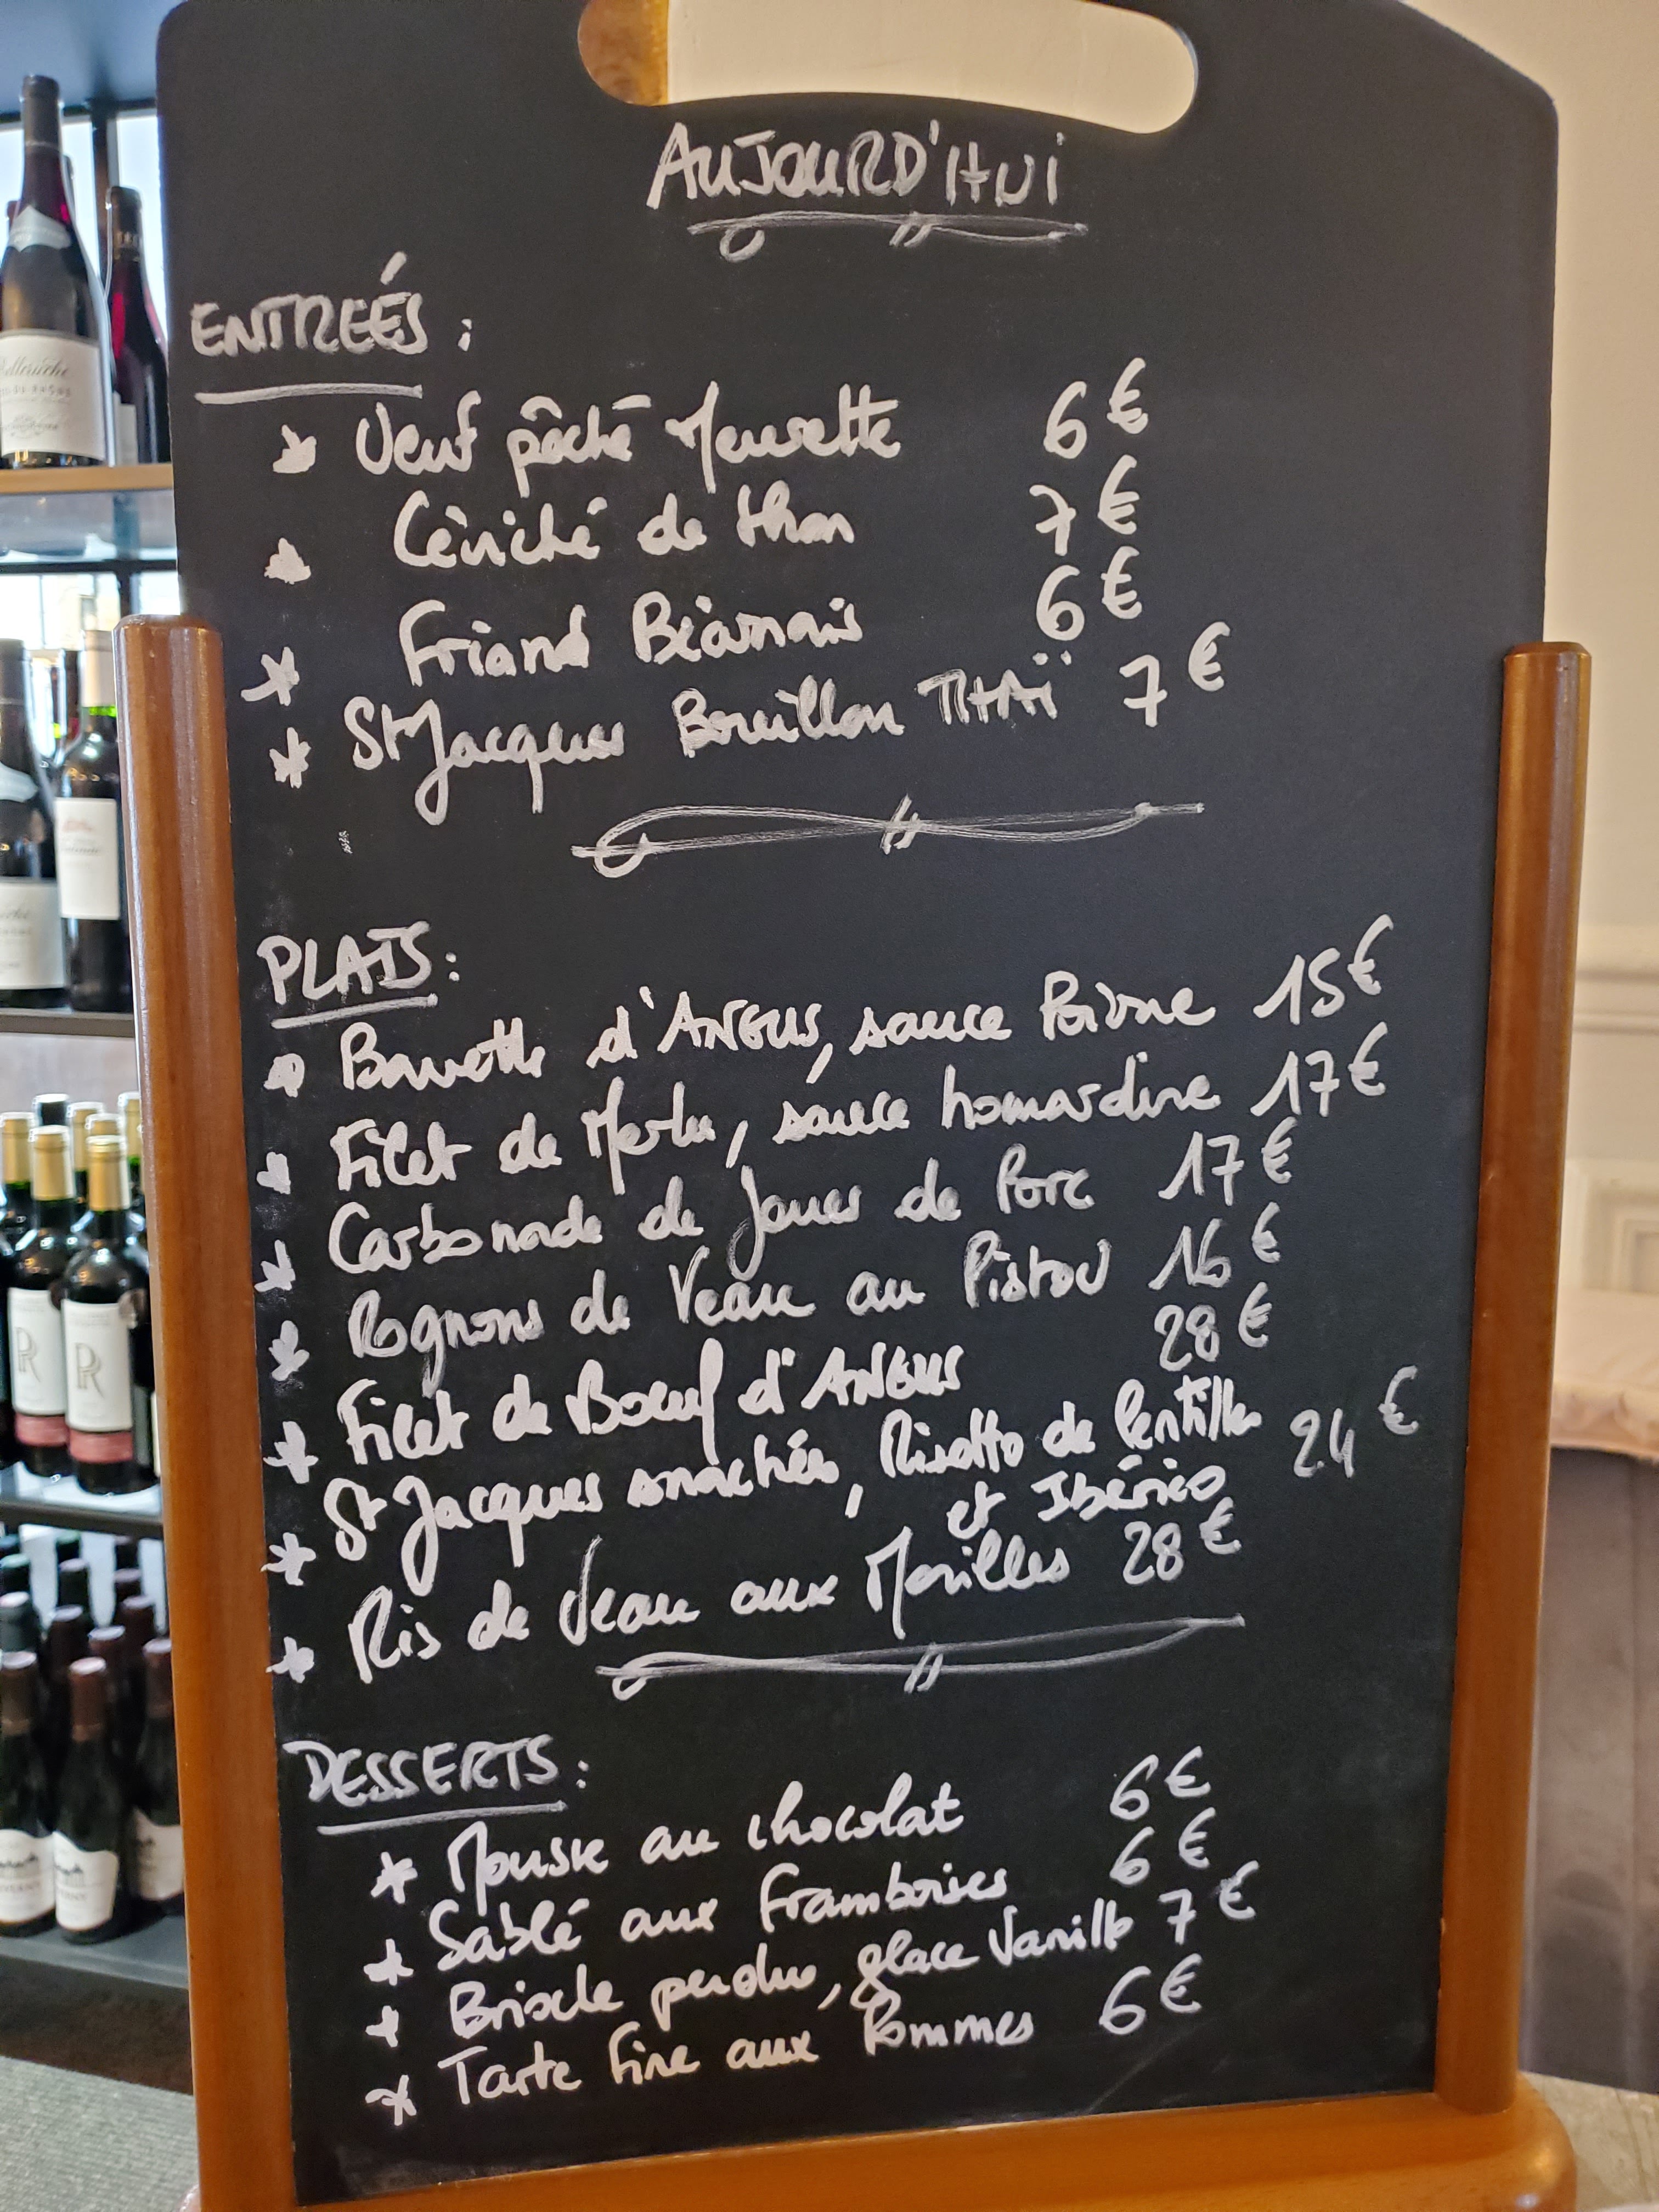 AUJOURD'HUI
ENTREÉS:
Oeuf pôché Meurette 6€
Céviché de thon 7€
Friand Béarnais 6€
St Jacques Bouillon THAÏ 7€
PLATS:
Bavette d'ANGUS, sauce Poivre 15€
Filet de Merlu, sauce homardine 17€
Carbonade de Joues de Porc 17€
Rognons de Veau au Pistou 16€
Filet de Boeuf d'ANGUS 28€
St Jacques snackées, Risotto de lentilles 24€
et Ibérico
Ris de Veau aux Morilles 28€
DESSERTS:
* Mousse au chocolat 6€
* Sablé aux Framboises 6€
* Brioche perdue, glace Vanille 7€
* Tarte fine aux Pommes 6€